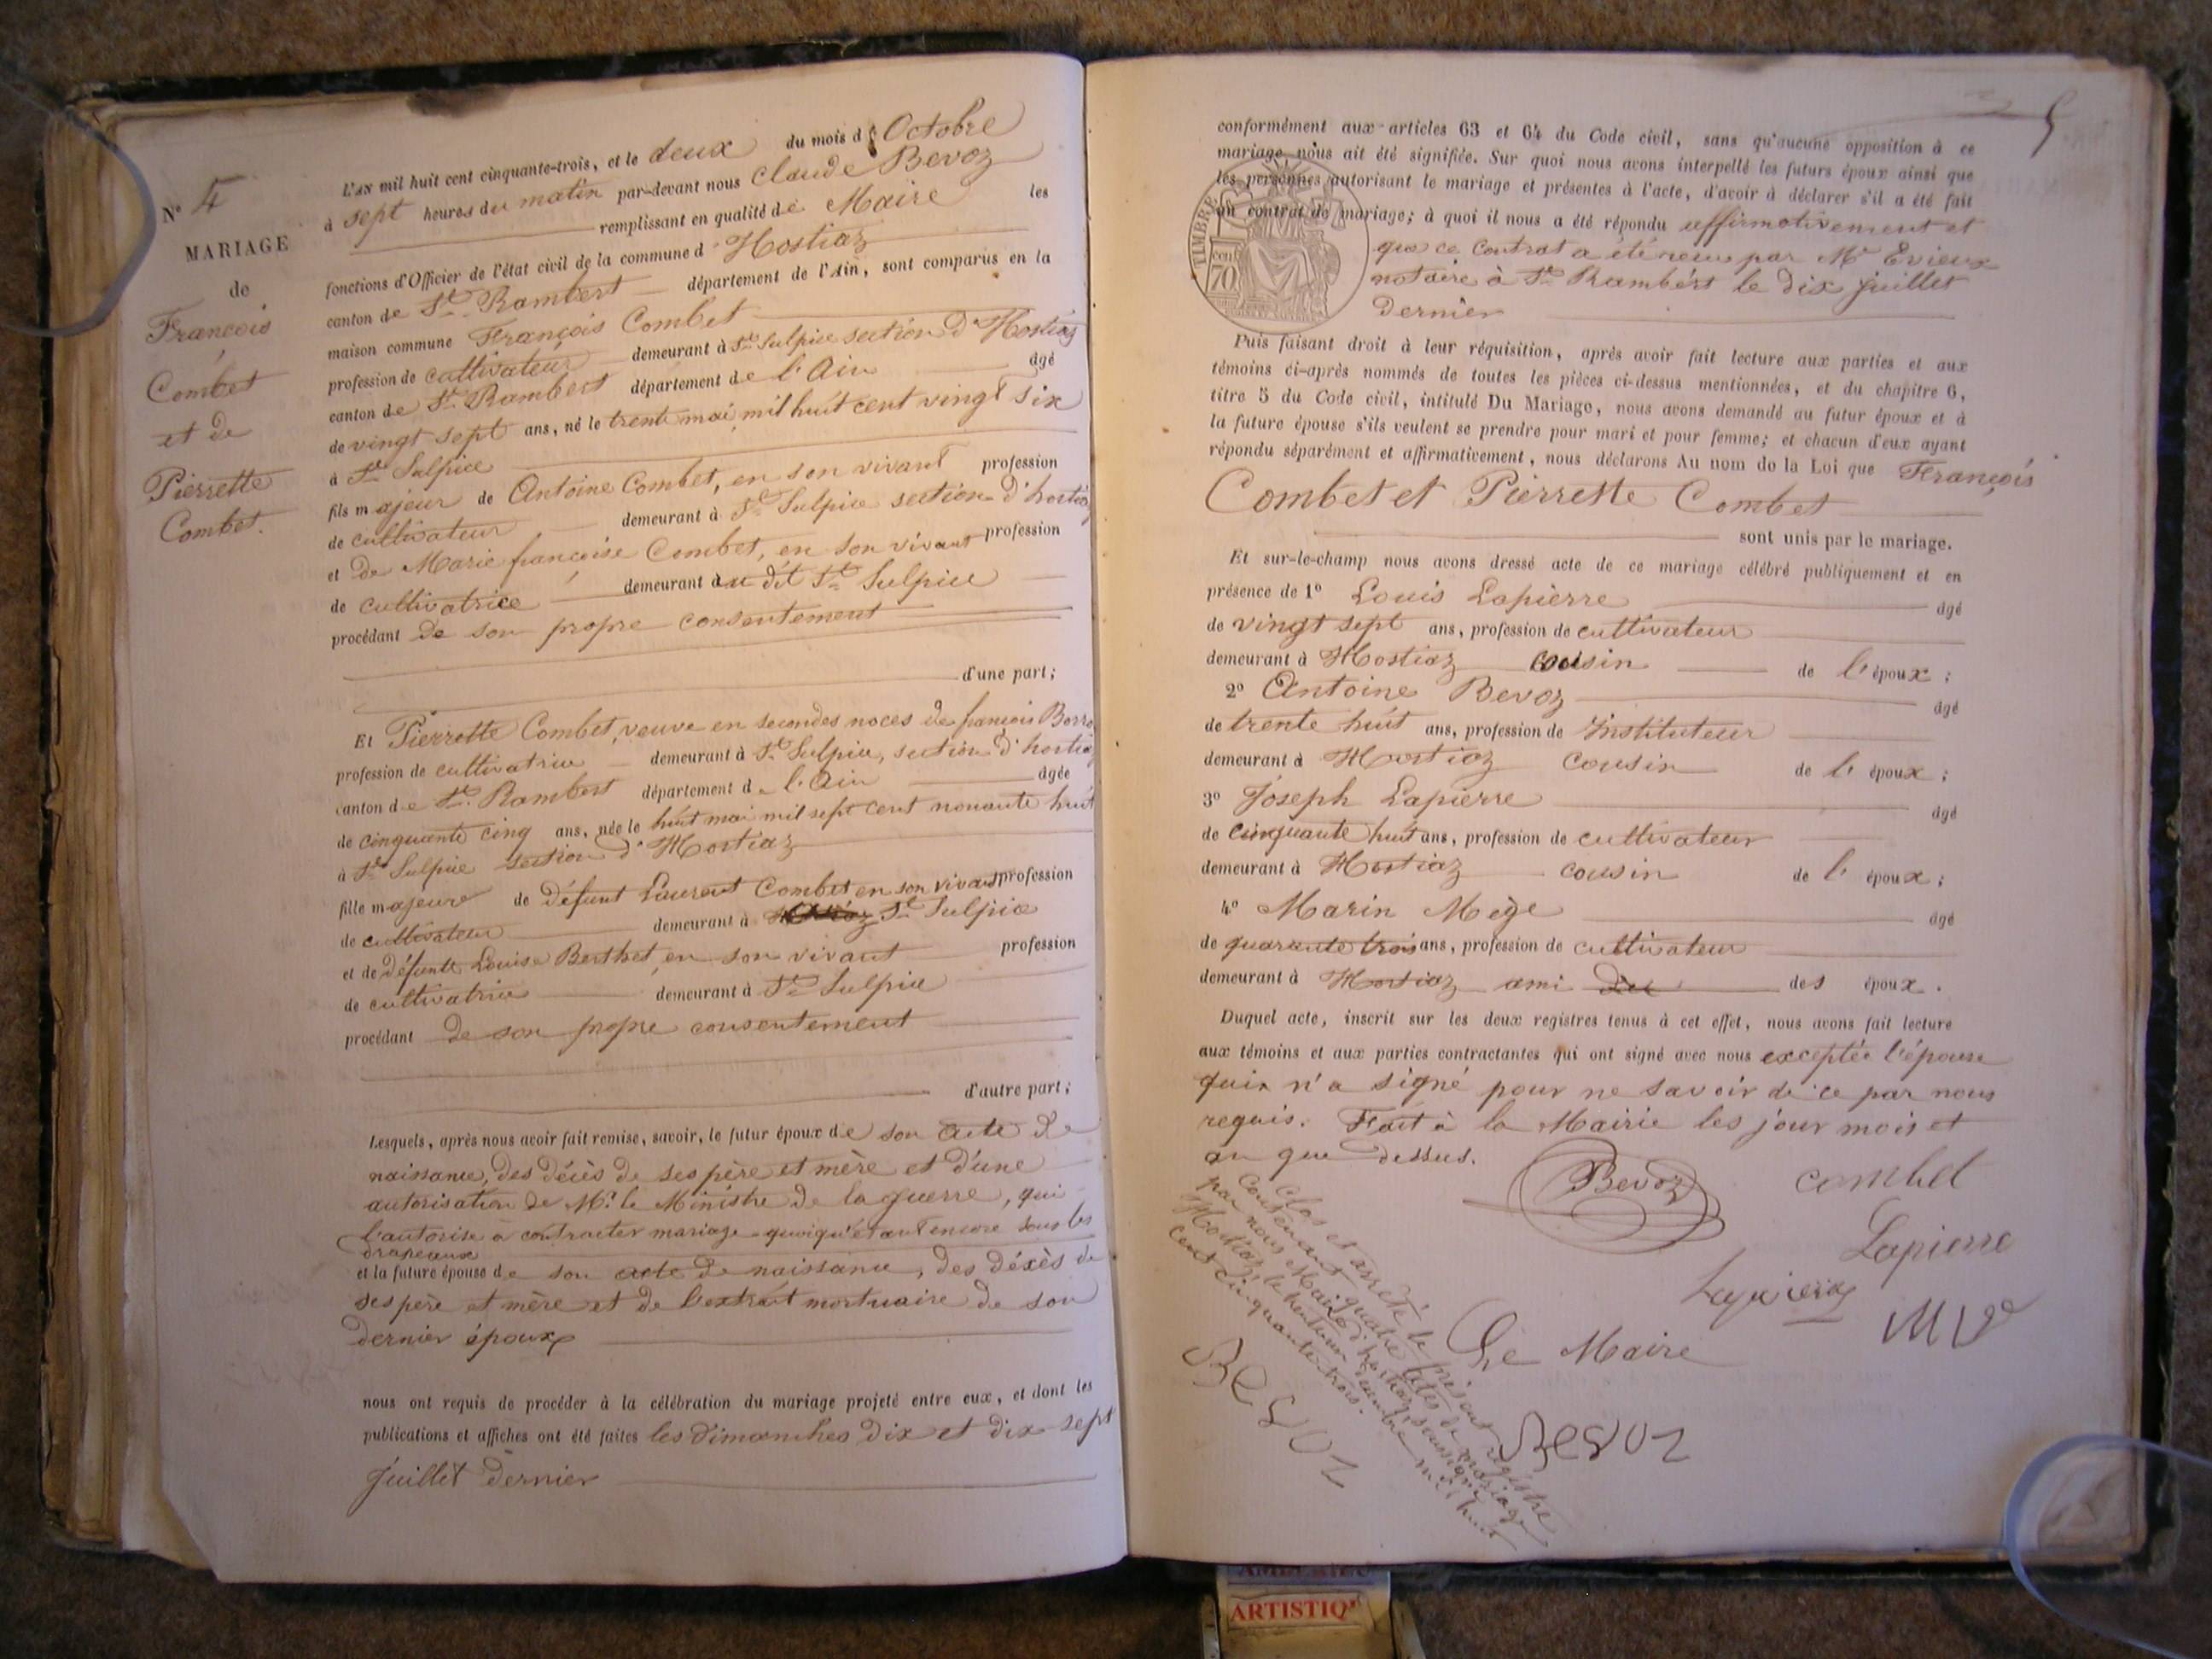 N° 4
MARIAGE
de
François
Combet
et de
Pierrette
Combet.
L'an mil huit cent cinquante-trois, et le deux du mois d' Octobre
à sept heures du matin par-devant nous Claude Bevoz
remplissant en qualité de Maire les
fonctions d'Officier de l'état civil de la commune d' Hostiaz
canton de St. Rambert département de l'Ain, sont comparus en la
maison commune François Combet
profession de cultivateur demeurant à St. Sulpice section d'Hostiaz
canton de St. Rambert département de l'Ain âgé
de vingt sept ans, né le trente mai mil huit cent vingt six
à St. Sulpice
fils majeur de Antoine Combet, en son vivant profession
de cultivateur demeurant à St. Sulpice section d'hostiaz
et de Marie françoise Combet, en son vivant profession
de cultivatrice demeurant au dit St. Sulpice
procédant de son propre consentement
d'une part;
Et Pierrette Combet, veuve en secondes noces de françois
profession de cultivatrice demeurant à St. Sulpice, section d'hostiaz
canton de St. Rambert département de l'Ain âgée
de cinquante cinq ans, née le huit mai mil sept cent nonante huit
à St. Sulpice section d'Hostiaz
fille majeure de défunt Laurent Combet en son vivant profession
de cultivateur demeurant à St. Sulpice
et de défunte Louise Berthet, en son vivant profession
de cultivatrice demeurant à St. Sulpice
procédant de son propre consentement
d'autre part;
Lesquels, après nous avoir fait remise, savoir, le futur époux de son acte de
naissance, des décès de ses père et mère et d'une
autorisation de Mr. le Ministre de la guerre, qui
l'autorise à contracter mariage quoiqu'étant encore sous les
drapeaux
et la future épouse de son acte de naissance, des décès de
ses père et mère et de l'extrait mortuaire de son
dernier époux
nous ont requis de procéder à la célébration du mariage projeté entre eux, et dont les
publications et affiches ont été faites les dimanches dix et dix-sept
juillet dernier
5
conformément aux articles 63 et 64 du Code civil, sans qu'aucune opposition à ce
mariage nous ait été signifiée. Sur quoi nous avons interpellé les futurs époux ainsi que
les personnes autorisant le mariage et présentes à l'acte, d'avoir à déclarer s'il a été fait
un contrat de mariage; à quoi il nous a été répondu affirmativement et
que ce contrat a été reçu par Me Evieux
notaire à St. Rambert le dix juillet
dernier
TIMBRE
cen
70
Puis faisant droit à leur réquisition, après avoir fait lecture aux parties et aux
témoins ci-après nommés de toutes les pièces ci-dessus mentionnées, et du chapitre 6,
titre 5 du Code civil, intitulé Du Mariage, nous avons demandé au futur époux et à
la future épouse s'ils veulent se prendre pour mari et pour femme; et chacun d'eux ayant
répondu séparément et affirmativement, nous déclarons Au nom de la Loi que François
Combet et Pierrette Combet
sont unis par le mariage.
Et sur-le-champ nous avons dressé acte de ce mariage célébré publiquement et en
présence de 1° Louis Lapierre âgé
de vingt sept ans, profession de cultivateur
demeurant à Hostiaz cousin de l'époux;
2° Antoine Bevoz âgé
de trente huit ans, profession de Instituteur
demeurant à Hostiaz cousin de l'époux;
3° Joseph Lapierre âgé
de cinquante huit ans, profession de cultivateur
demeurant à Hostiaz cousin de l'époux;
4° Marin Mège âgé
de quarante trois ans, profession de cultivateur
demeurant à Hostiaz ami des époux.
Duquel acte, inscrit sur les deux registres tenus à cet effet, nous avons fait lecture
aux témoins et aux parties contractantes qui ont signé avec nous exceptée l'épouse
qui n'a signé pour ne savoir de ce par nous
requis. Fait à la Mairie les jour mois et
an que dessus.
Bevoz
combet
Lapierre
Le Maire
Bevoz
Clos et arrêté le présent registre
contenant quatre actes de mariage
par nous Maire d'hostiaz soussigné
Hostiaz, le trente un décembre mil huit
cent cinquante-trois.
Bevoz
ARTISTIQ